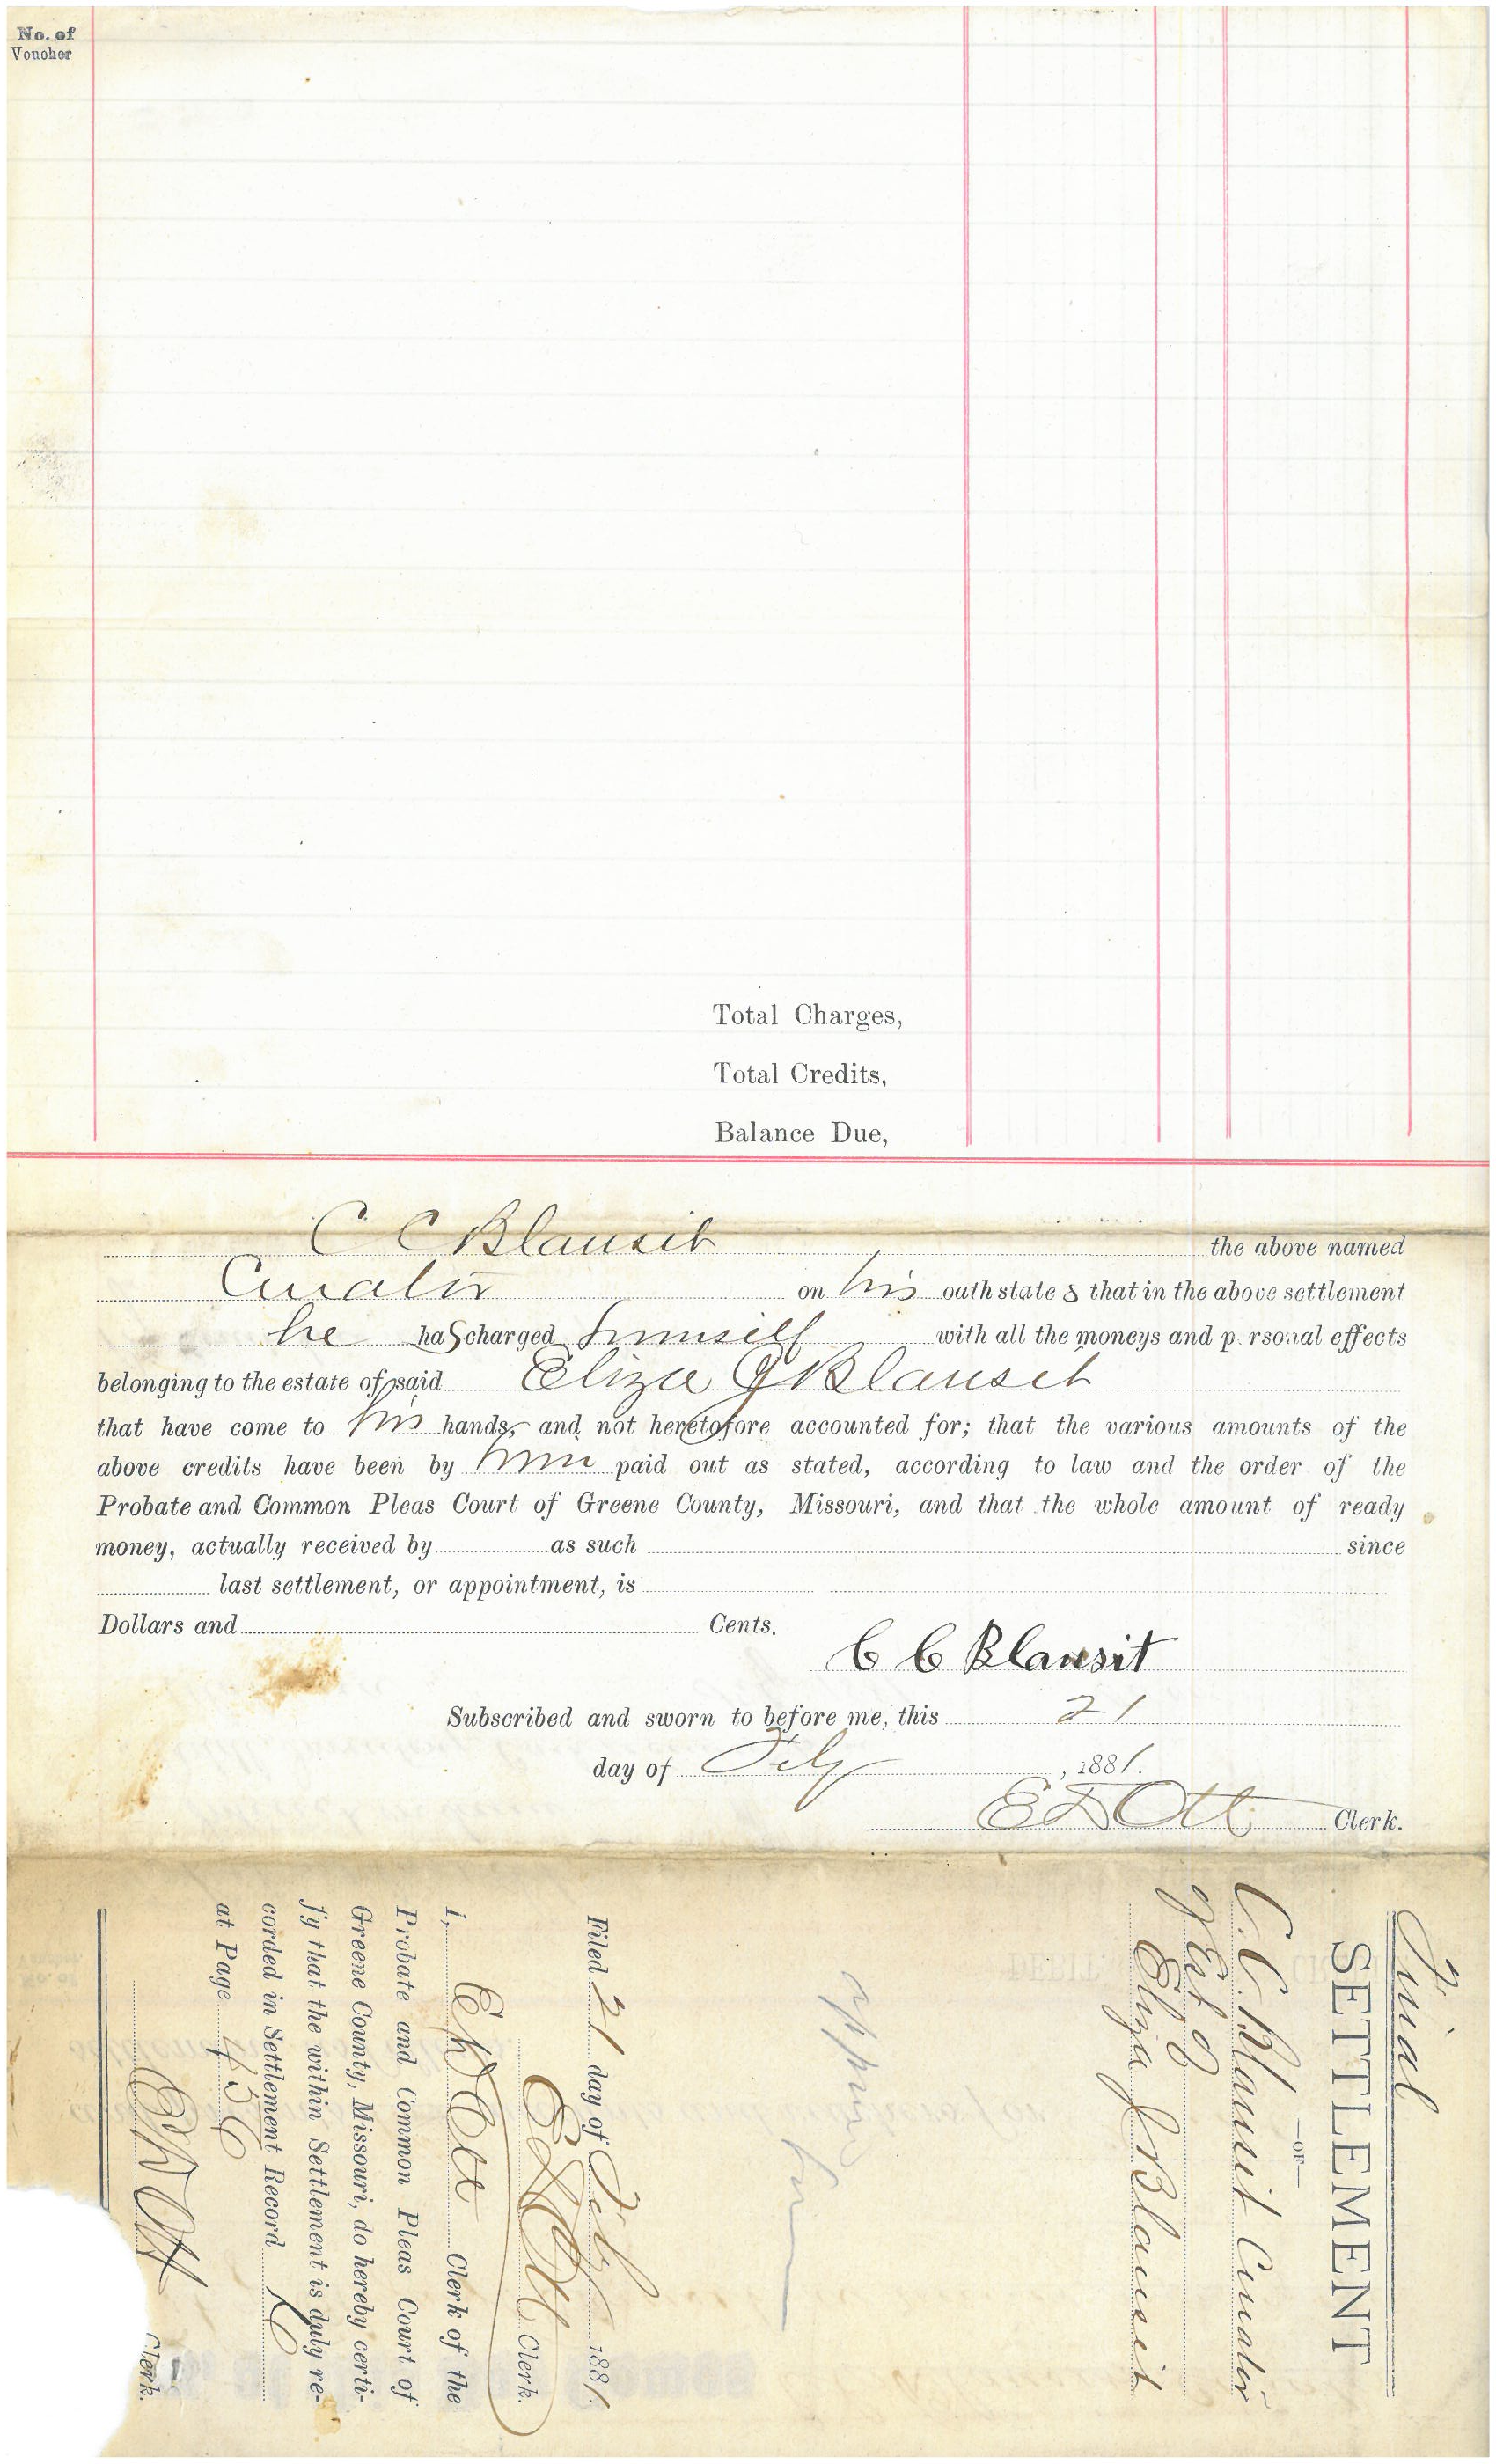 No. of
Voucher
Total Charges,
Total Credits,
Balance Due,
C C Blansit the above named
Curator on his oath states that in the above settlement
he has charged himself with all the moneys and p rsonal effects
belonging to the estate of said Eliza J Blansit
that have come to his hands, and not heretofore accounted for; that the various amounts of the
above credits have been by him paid out as stated, according to law and the order of the
Probate and Common Pleas Court of Greene County, Missouri, and that the whole amount of ready
money, actually received by as such since
last settlement, or appointment, is
Dollars and Cents.
C C Blansit
Subscribed and sworn to before me, this 21
day of Feby , 1881.
E D Ott Clerk.
Final
SETTLEMENT
—OF—
C. C. Blansit Curator
of Est of
Eliza J Blansit
Filed 21 day of Feby 1881.
E D Ott Clerk.
I, E D Ott Clerk of the
Probate and Common Pleas Court of
Greene County, Missouri, do hereby certi-
fy that the within Settlement is duly re-
corded in Settlement Record
at Page
E D Ott
Clerk.